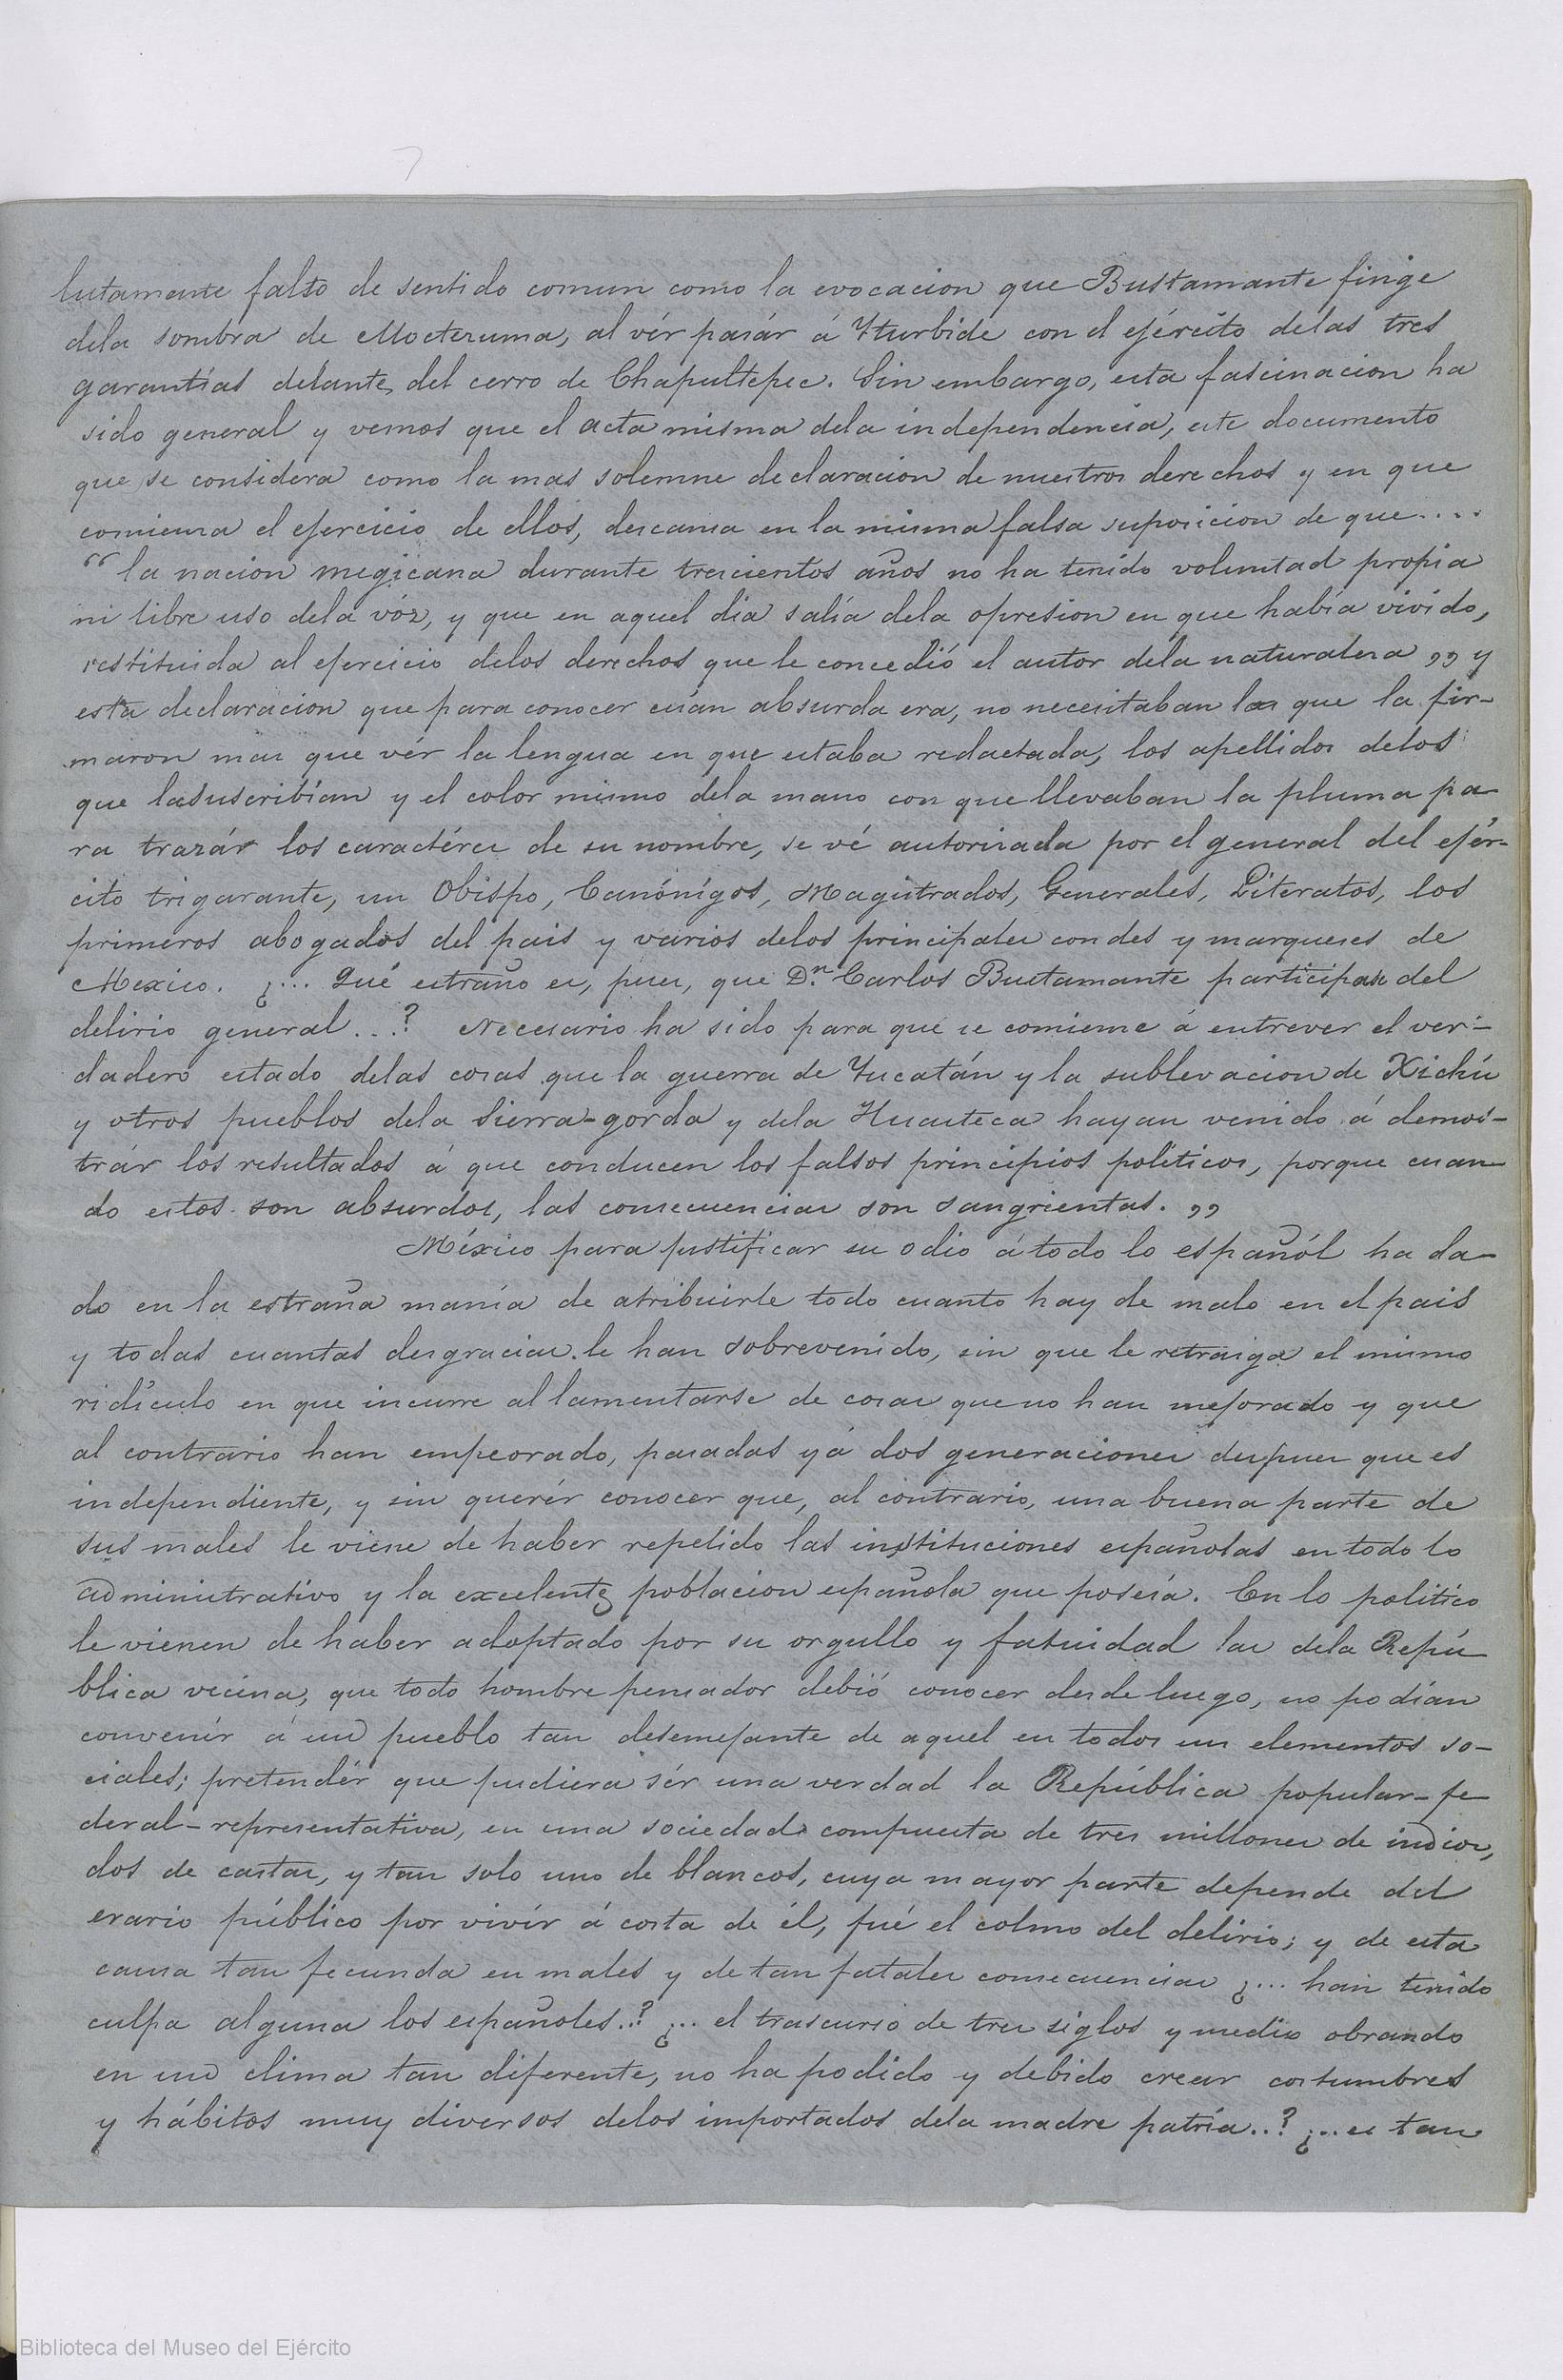 lutamente falto de sentido comun como la evocacion que Bustamante finge
dela sombra de Moctezuma, al vér pasár á Yturbide con el ejército delas tres
garantías delante del cerro de Chapultepec. Sin embargo, esta fascinacion ha
sido general y vemos que el acta misma dela independencia, este documento
que se considera como la mas solemne declaracion de nuestros derechos y en que
comienza el ejercicio de ellos, descansa en la misma falsa suposicion de que....
“ la nacion megicana durante trescientos años no ha tenido voluntad propia
ni libre uso dela vóz, y que en aquel dia salía dela opresion en que había vivido,
restituida al ejercicio delos derechos que le concedió el autor dela naturaleza ,, y
esta declaracion que para conocer cuán absurda era, no necesitaban los que la fir-
maron mas que vér la lengua en que estaba redactada, los apellidos delos
que lasuscribían y el color mismo dela mano con que llevaban la pluma pa-
ra trazár los caractéres de su nombre, se vé autorizada por el general del ejér-
cito trigarante, un Obispo, Canónígos, Magistrados, Generales, Literatos, los
primeros abogados del pais y varios delos principales condes y marqueses de
Mexico. ¿... Qué estraño es, pues, que Dn. Carlos Bustamante participase del
delirio general...? Necesario ha sido para que se comience á entrever el ver-
dadero estado delas cosas que la guerra de Yucatán y la sublevacion de Xichú
y otros pueblos dela Sierra-gorda y dela Huasteca hayan venido á demos-
trár los resultados á que conducen los falsos principios políticos, porque cuan-
do estos son absurdos, las consecuencias son sangrientas. ,,
México para justificar su odio á todo lo españól ha da-
do en la estraña manía de atribuirle todo cuanto hay de malo en el pais
y todas cuantas desgracias le han sobrevenido, sin que le retraiga el mismo
ridículo en que incurre al lamentarse de cosas que no han mejorado y que
al contrario han empeorado, pasadas yá dos generaciones despues que es
independiente, y sin querér conocer que, al contrario, una buena parte de
sus males le viene de haber repelido las instituciones españolas en todo lo
administrativo y la excelente poblacion española que poseía. En lo politico
le vienen de haber adoptado por su orgullo y fatuidad las dela Repú-
blica vecina, que todo hombre pensador debió conocer desde luego, no podían
convenír á un pueblo tan desemejante de aquel en todos sus elementos so-
ciales; pretendér que pudiera sér una verdad la República popular-fe-
deral-representativa, en una sociedad compuesta de tres millones de indios,
dos de castas, y tan solo uno de blancos, cuya mayor parte depende del
erario público por vivír á costa de él, fué el colmo del delirio; y de esta
causa tan fecunda en males y de tan fatales consecuencias ¿... han tenido
culpa alguna los españoles..? ¿... el trascurso de tres siglos y medio obrando
en un clima tan diferente, no ha podido y debido crear costumbres
y hábitos muy diversos delos importados dela madre patría..? ¿... es tan
Biblioteca del Museo del Ejército